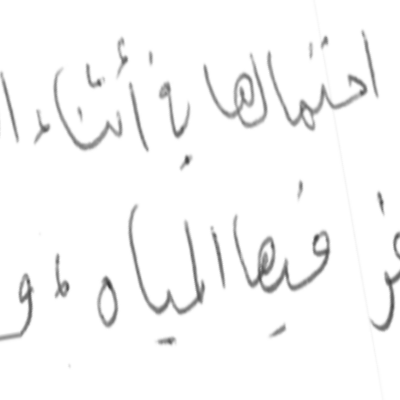 احتمالها في أثناء
فيها المياه، و